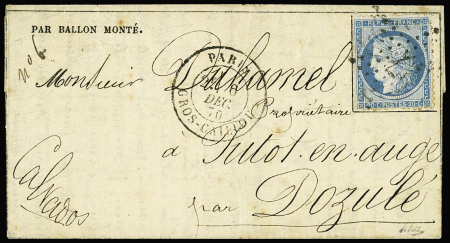 PAR BALLON MONTÉ.
REPUB. FRANC.
No 2
Monsieur Duhamel
PARIS
DEC.
70
GROS-CAILLOU
Propriétaire
à Putot-en-auge
par Dozulé
Calvados